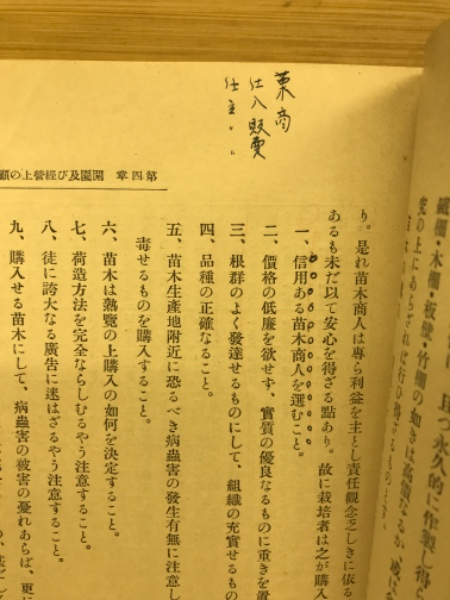 鐵柵・木柵・板壁・竹柵の如きは高價なるか、或は
究の上にあらざれば行ひ得ざるものとす。
且つ永久的に作製し得
栗商
仕入販賣
仕主
第四章 開園及び經營上の
り。是れ苗木商人は專ら利益を主とし責任觀念乏しきに依る
あるも未だ以て安心を得ざる點あり。故に栽培者は之が購入
一、信用ある苗木商人を選むこと。
二、價格の低廉を欲せず、實質の優良なるものに重きを置
三、根群のよく發達せるものにして、組織の充實せるもの
四、品種の正確なること。
五、苗木生產地附近に恐るべき病蟲害の發生有無に注意し
毒せるものを購入すること。
六、苗木は熟覽の上購入の如何を決定すること。
七、荷造方法を完全ならしむるやう注意すること。
八、徒に誇大なる廣告に迷はざるやう注意すること。
九、購入せる苗木にして、病蟲害の被害の憂れあらば、更に